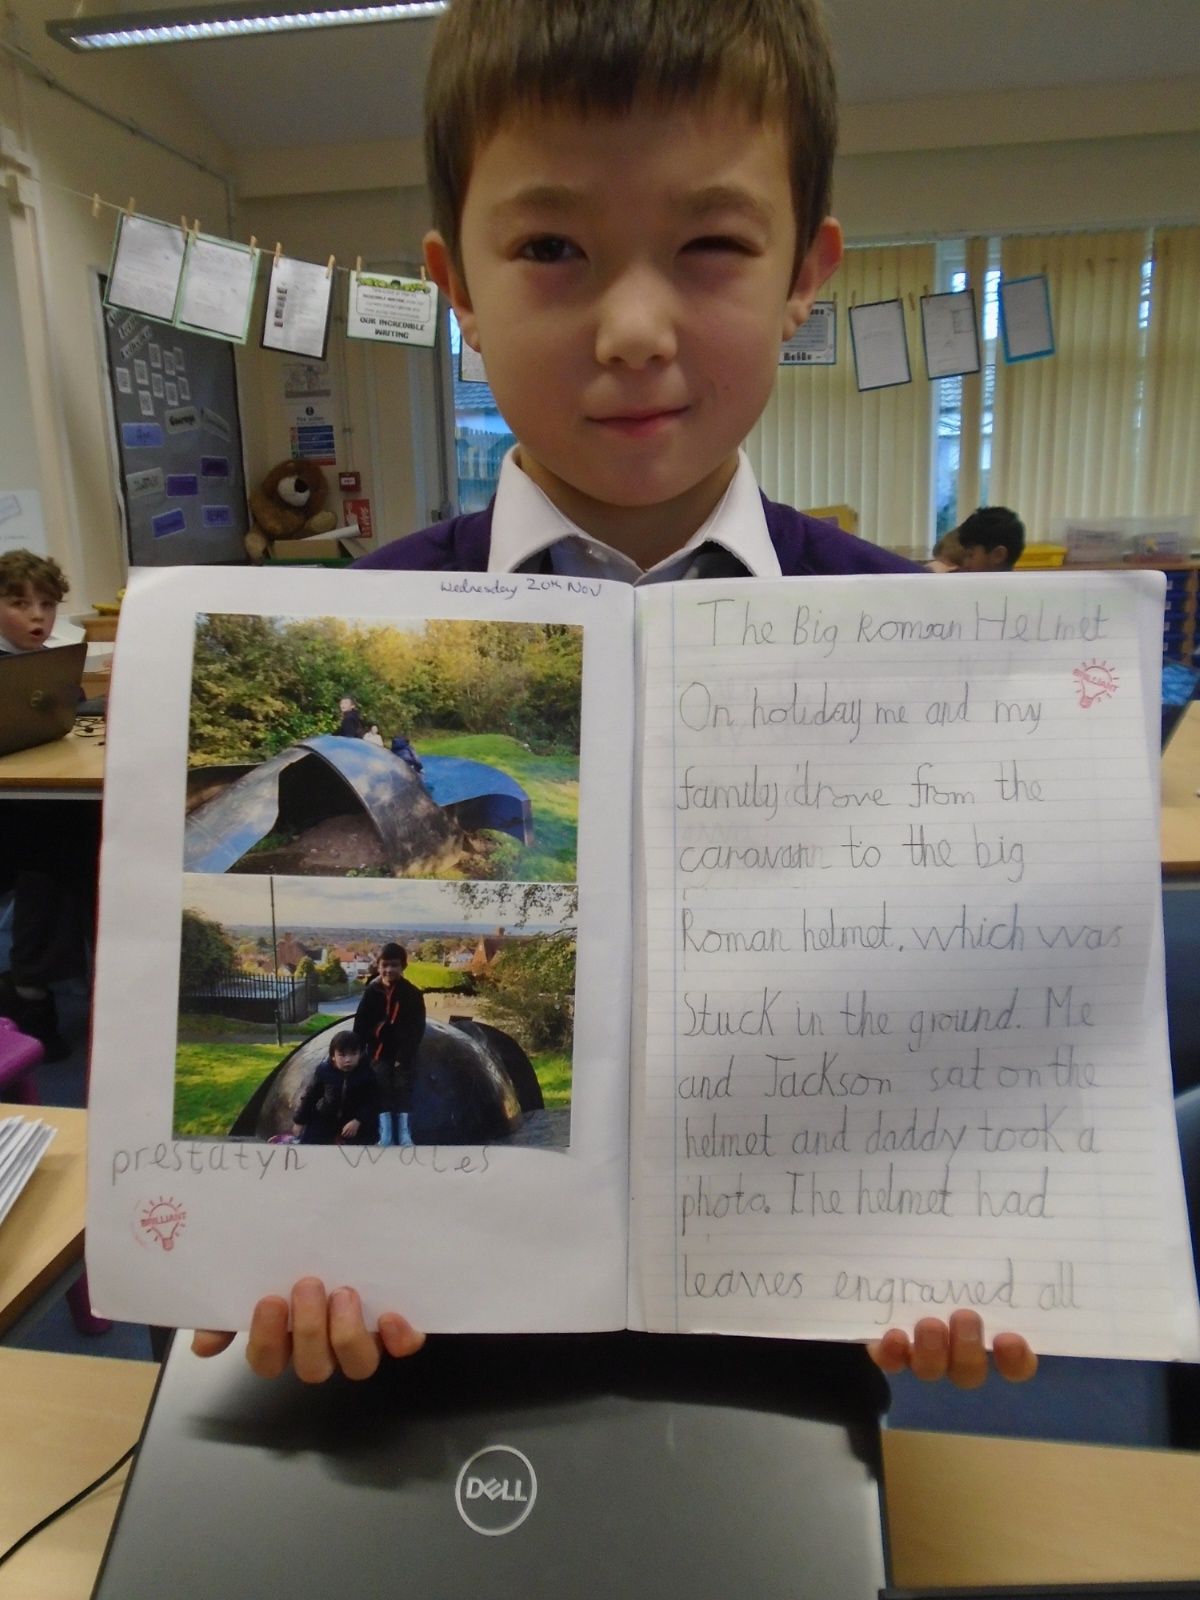 OUR INCREDIBLE
WRITING
Wednesday 20th Nov
prestatyn Wales
BRILLIANT
The Big Roman Helmet
BRILLIANT
On holiday me and my
family drove from the
caravan to the big
Roman helmet, which was
stuck in the ground. Me
and Jackson sat on the
helmet and daddy took a
photo. The helmet had
leaves engraved all
DELL